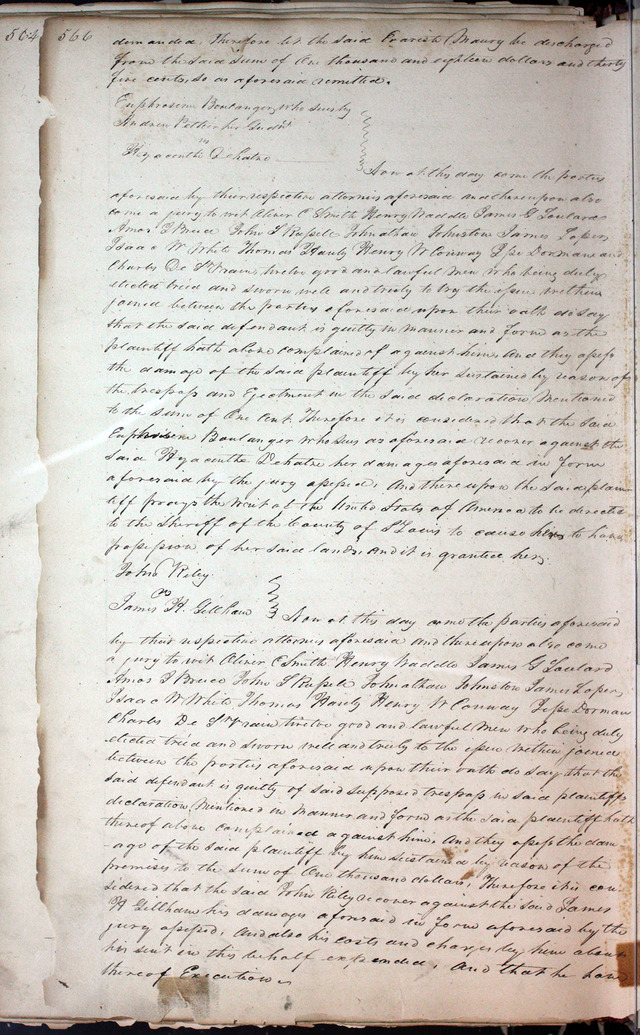 564 566
demanded. Therefore let the said Maury be discharged
from the said sum of One thousand and eighteen dollars and thirty
five cents, so as aforesaid remitted.
Euphrosine Boulanger, who sues by
Andrew her Guard.n
vs
Hyacenthe Dehatre
Now at this day come the parties
aforesaid by their respective attornies aforesaid and thereupon also
come a jury to wit Oliver C Smith Henry Waddle James G Soulard
Amos T Bruce John T Russele Johnathan Johnston James Loper
Isaac W White Thomas Hardy Henry W Conway Jesse Dorman and
Charles De St Vrain twelve good and lawful men who being duly
elected tried and sworn well and truly to try the issue within
joined between the parties aforesaid upon their oath do say
that the said defendant is guilty in manner and form as the
plaintiff hath above complained of against him. And they assess
the damage of the said plaintiff by her sustained by reason of
the trespass and Ejectment in the said declaration mentioned
to the sum of One Cent. Therefore it is considered that the said
Euphrosine Boulanger who sues as aforesaid recover against the
said Hyacenthe Dehatre her damages aforesaid in form
aforesaid by the jury assessed. And thereupon the said plain
tiff prays the writ of the United States of America to be directed
to the Sheriff of the County of St Louis to cause her to have
possession of her said lands, and it is granted her.
John Riley
vs
James H. Gillham
Now at this day come the parties aforesaid
by their respective attornies aforesaid and thereupon also come
a jury to wit Oliver C Smith Henry Waddle James G Soulard
Amos T Bruce John T Russele Johnathan Johnston James Loper,
Isaac W White Thomas Hardy Henry W Conway Jesse Dorman
Charles De St Vrain twelve good and lawful men who being duly
elected tried and sworn well and truly to the issue within joined
between the parties aforesaid upon their oath do say that the
said defendant is guilty of said supposed trespass in said plaintiffs
declaration mentioned in manner and form as the said plaintiff hath
thereof above complained against him. And they assess the dam
-age of the said plaintiff by him sustained by reason of the
premises to the sum of One thousand dollars; Therefore it is con
sidered that the said John Riley recover against the said James
H Gillham his damages aforesaid in form aforesaid by the
jury assessed, And also his costs and charges by him about
his suit in this behalf expended; And that he have
thereof Execution